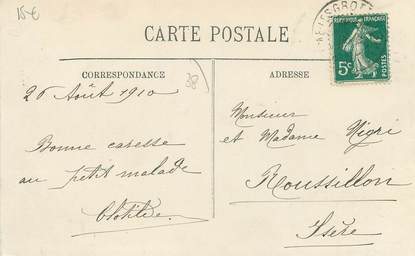 15€
CARTE POSTALE
CORRESPONDANCE
ADRESSE
REPUBLIQUE FRANÇAISE
5c
26 Août 1910
Bonne caresse
au petit malade
Clotilde
Monsieur
et Madame Nigri
Roussillon
Isère